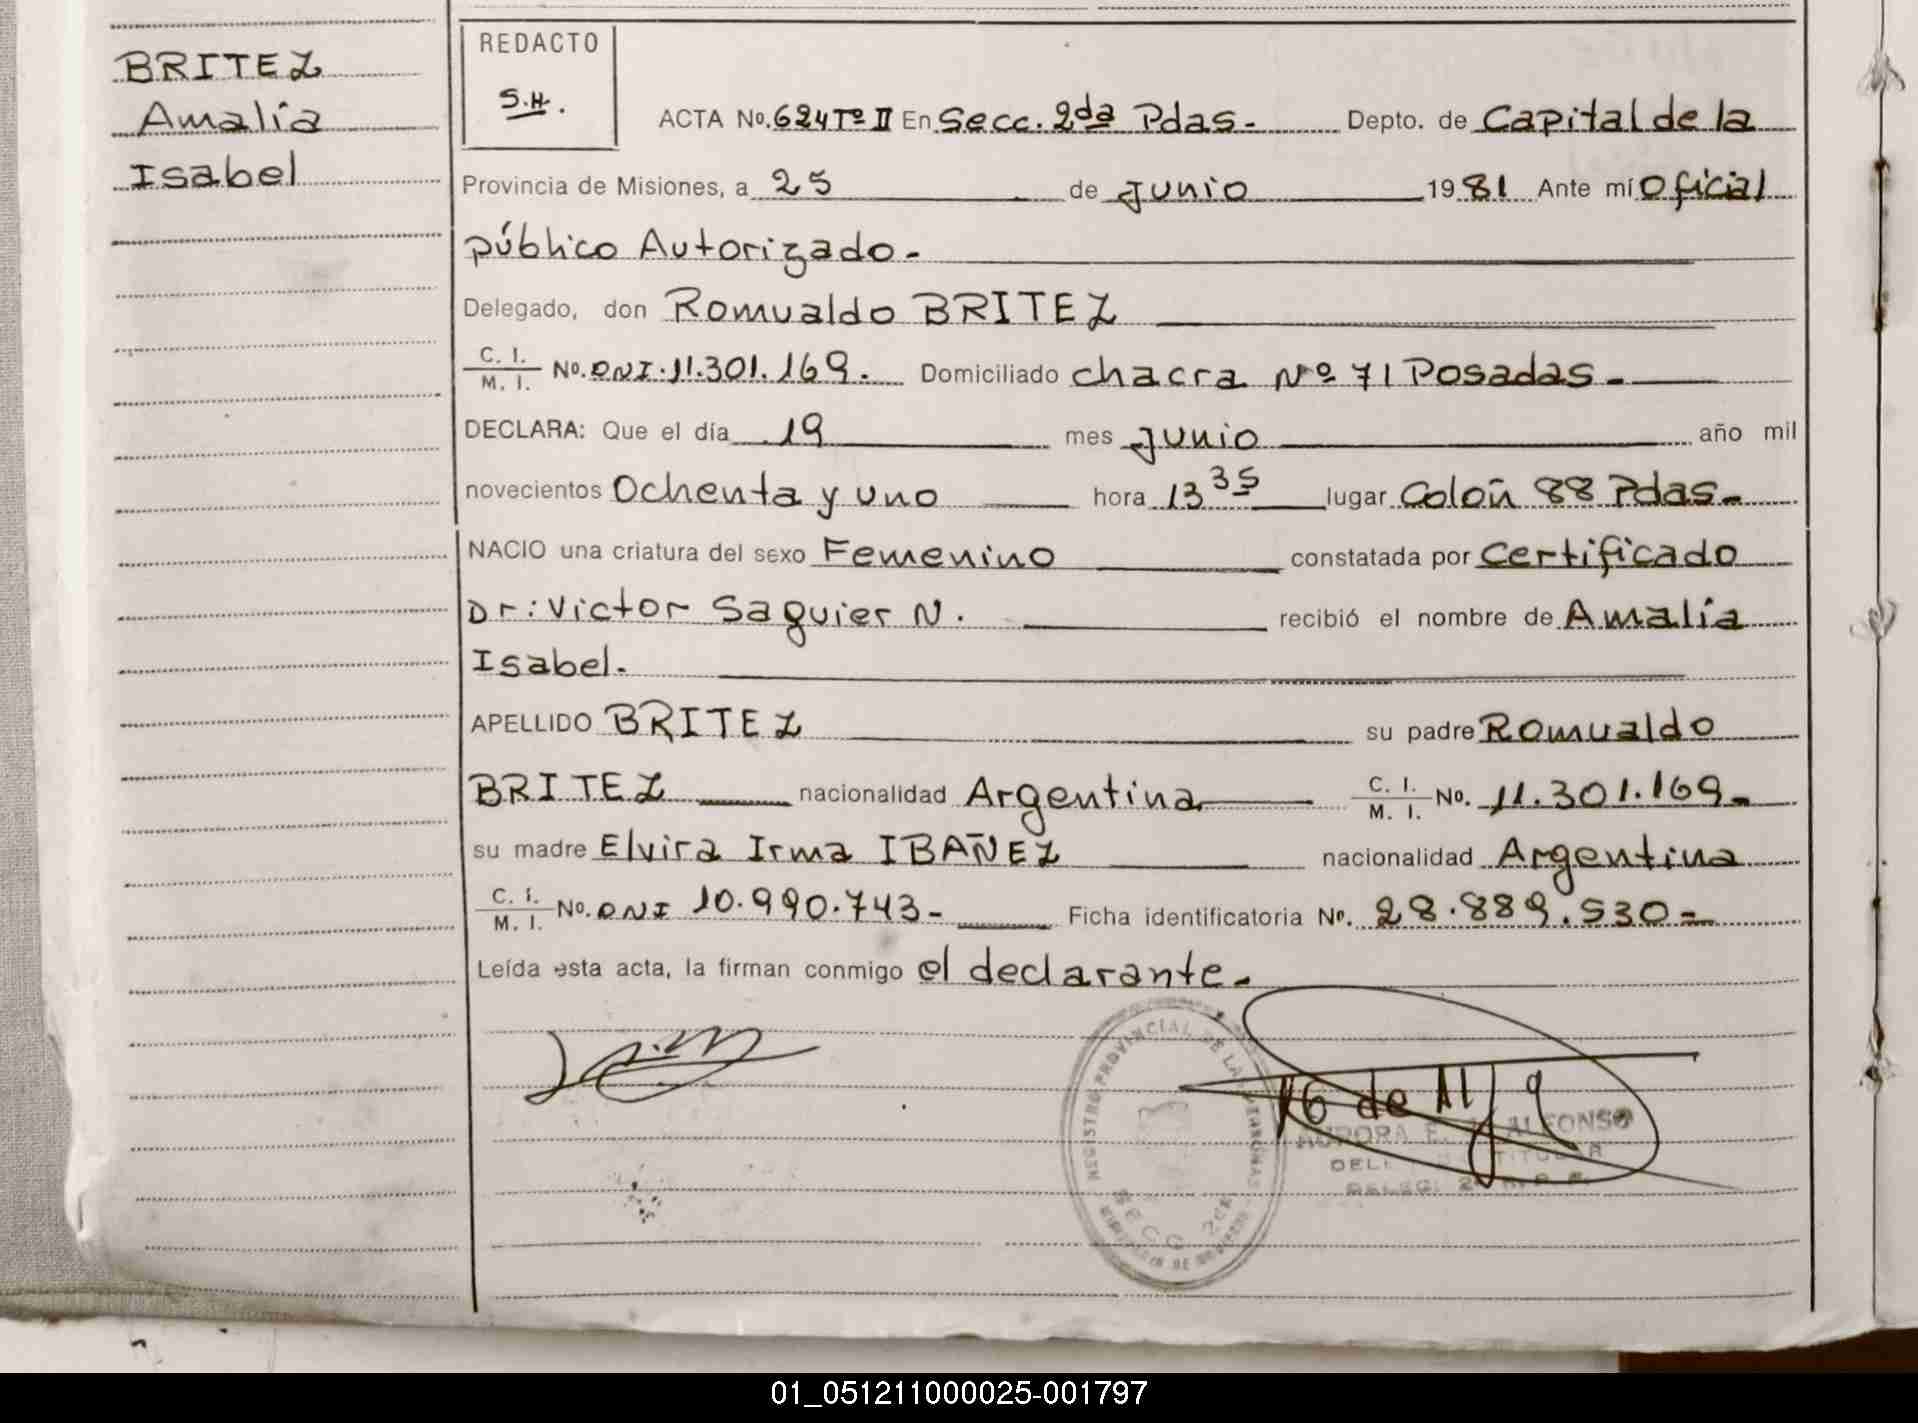 BRITEZ
Amalia
Isabel
REDACTO
S.H.
ACTA No. 624 Tº II En Secc. 2da Pdas.- Depto. de Capital de la
Provincia de Misiones, a 25 de Junio 1981 Ante mí Oficial
público Autorizado.-
Delegado, don Romualdo BRITEZ
C. I. / M. I. No. DNI. 11.301.169. Domiciliado chacra Nº 71 Posadas.-
DECLARA: Que el día 19 mes Junio año mil
novecientos Ochenta y uno hora 13 35 lugar Colón 88 Pdas.-
NACIO una criatura del sexo Femenino constatada por Certificado
Dr: Victor Saguier N. recibió el nombre de Amalia
Isabel.
APELLIDO BRITEZ su padre Romualdo
BRITEZ nacionalidad Argentina C. I. / M. I. No. 11.301.169-
su madre Elvira Irma IBAÑEZ nacionalidad Argentina
C. I. / M. I. No. DNI 10.990.743- Ficha identificatoria No. 28.889.530=
Leída esta acta, la firman conmigo el declarante.-
REGISTRO PROVINCIAL DE LAS PERSONAS
SECC 2da
AURORA E. ALFONSO
TITULAR
01_051211000025-001797